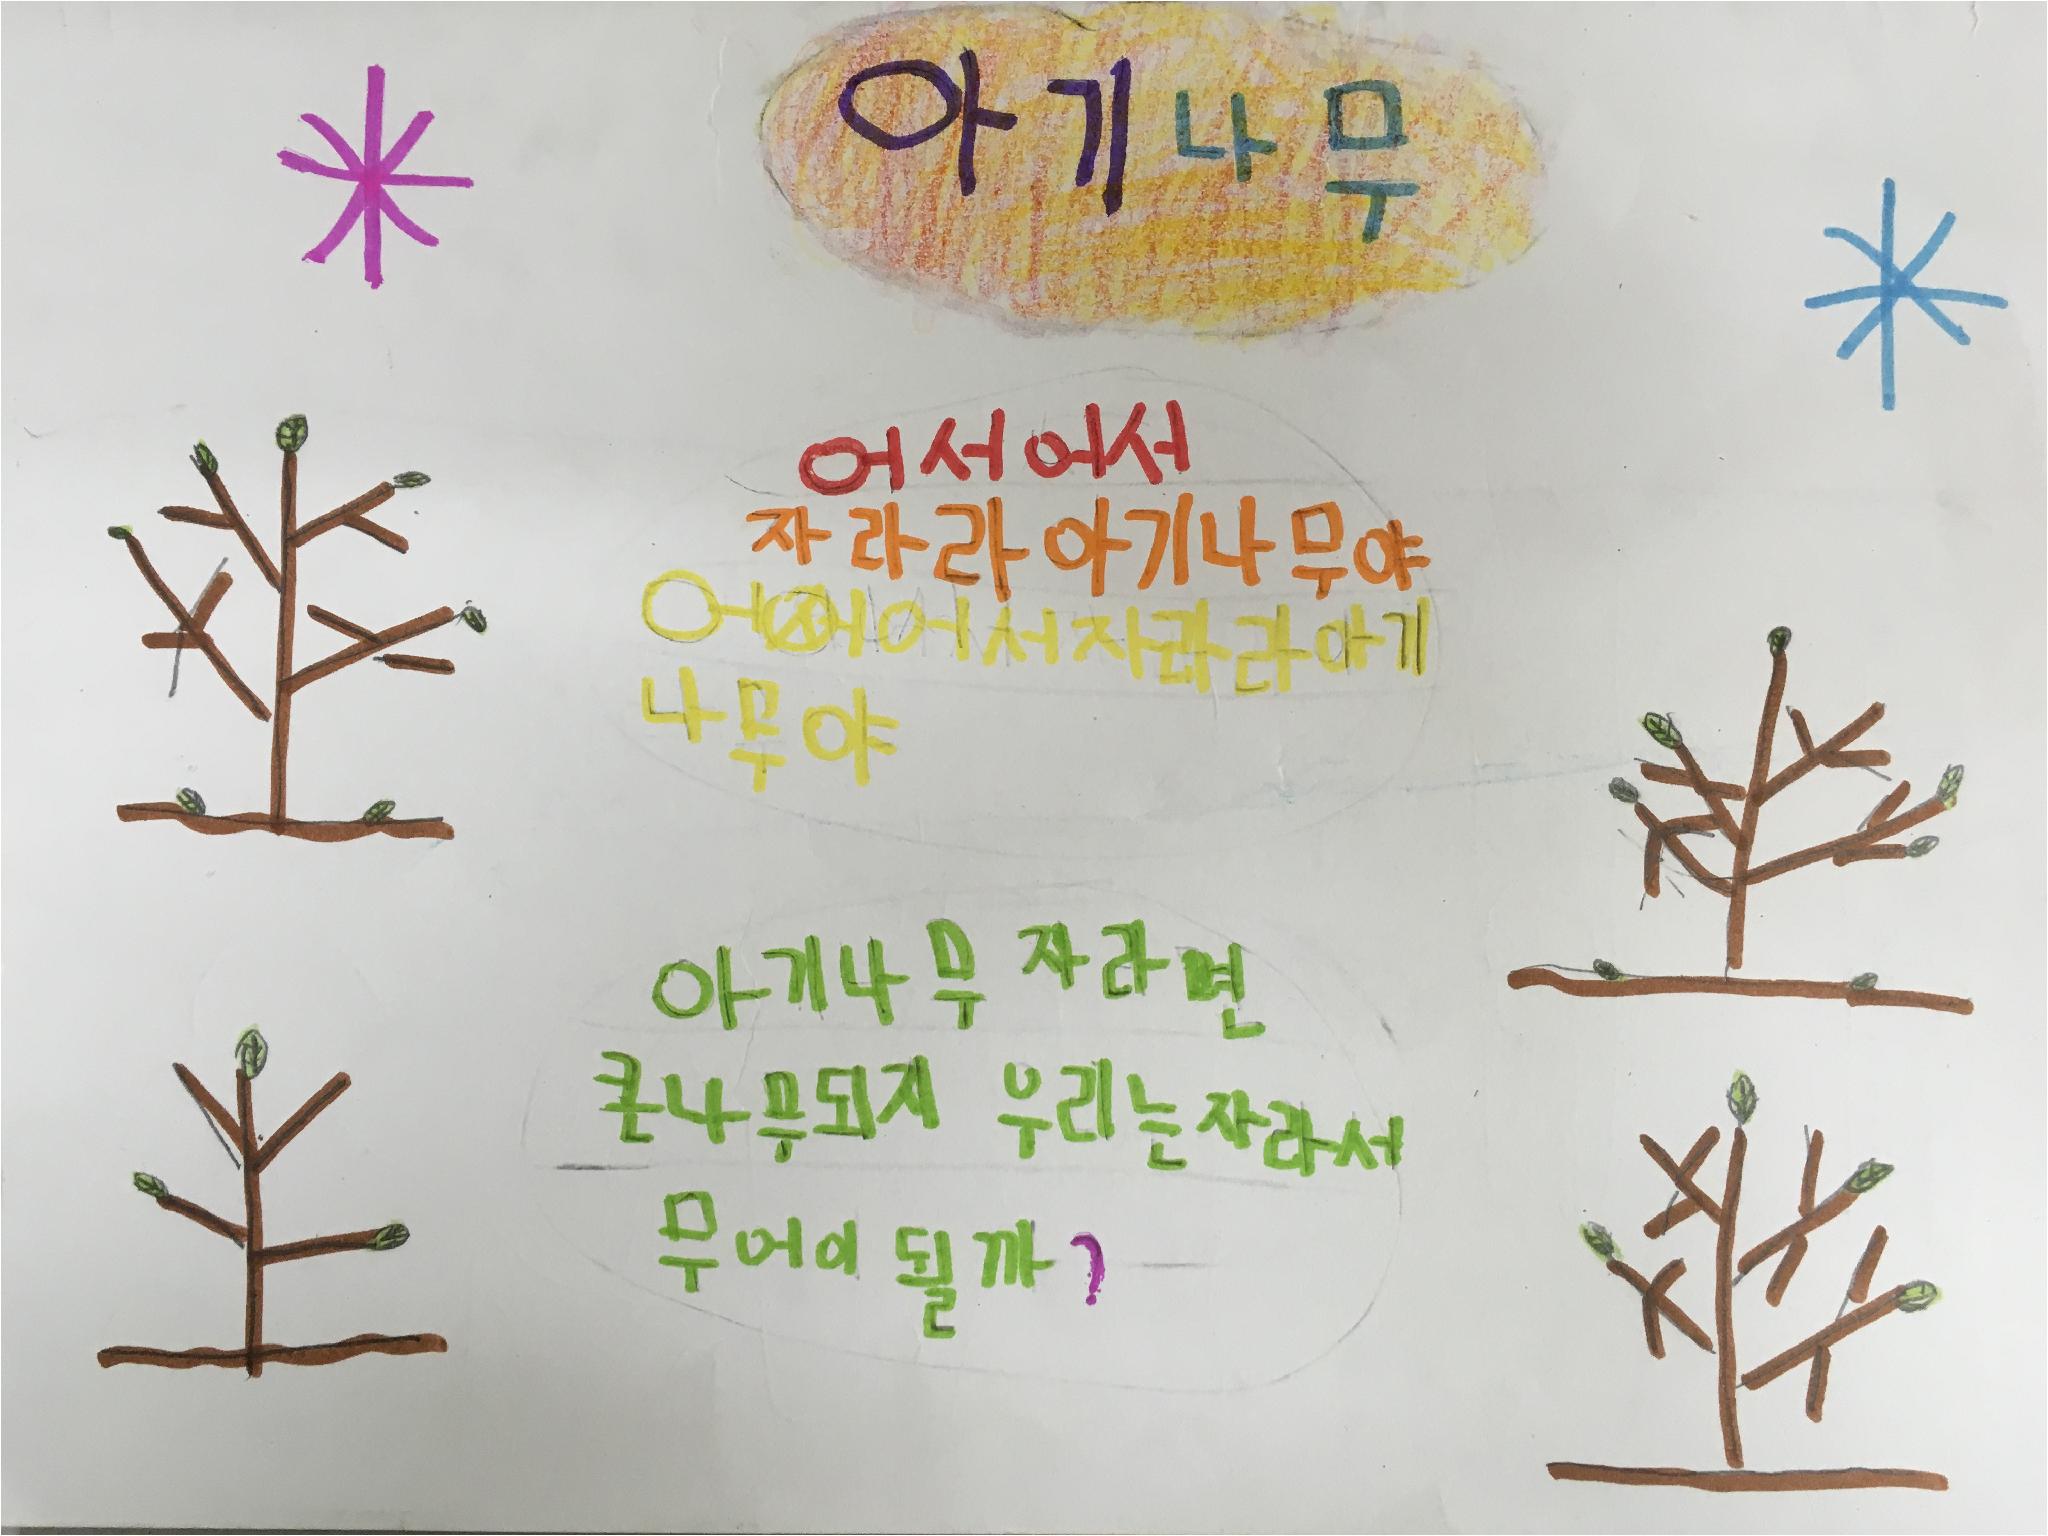 아기나무
어서어서
자라라아기나무야
어서어서자라라아기
나무야
아기나무 자라면
큰나무되지 우리는자라서
무어이 될까?